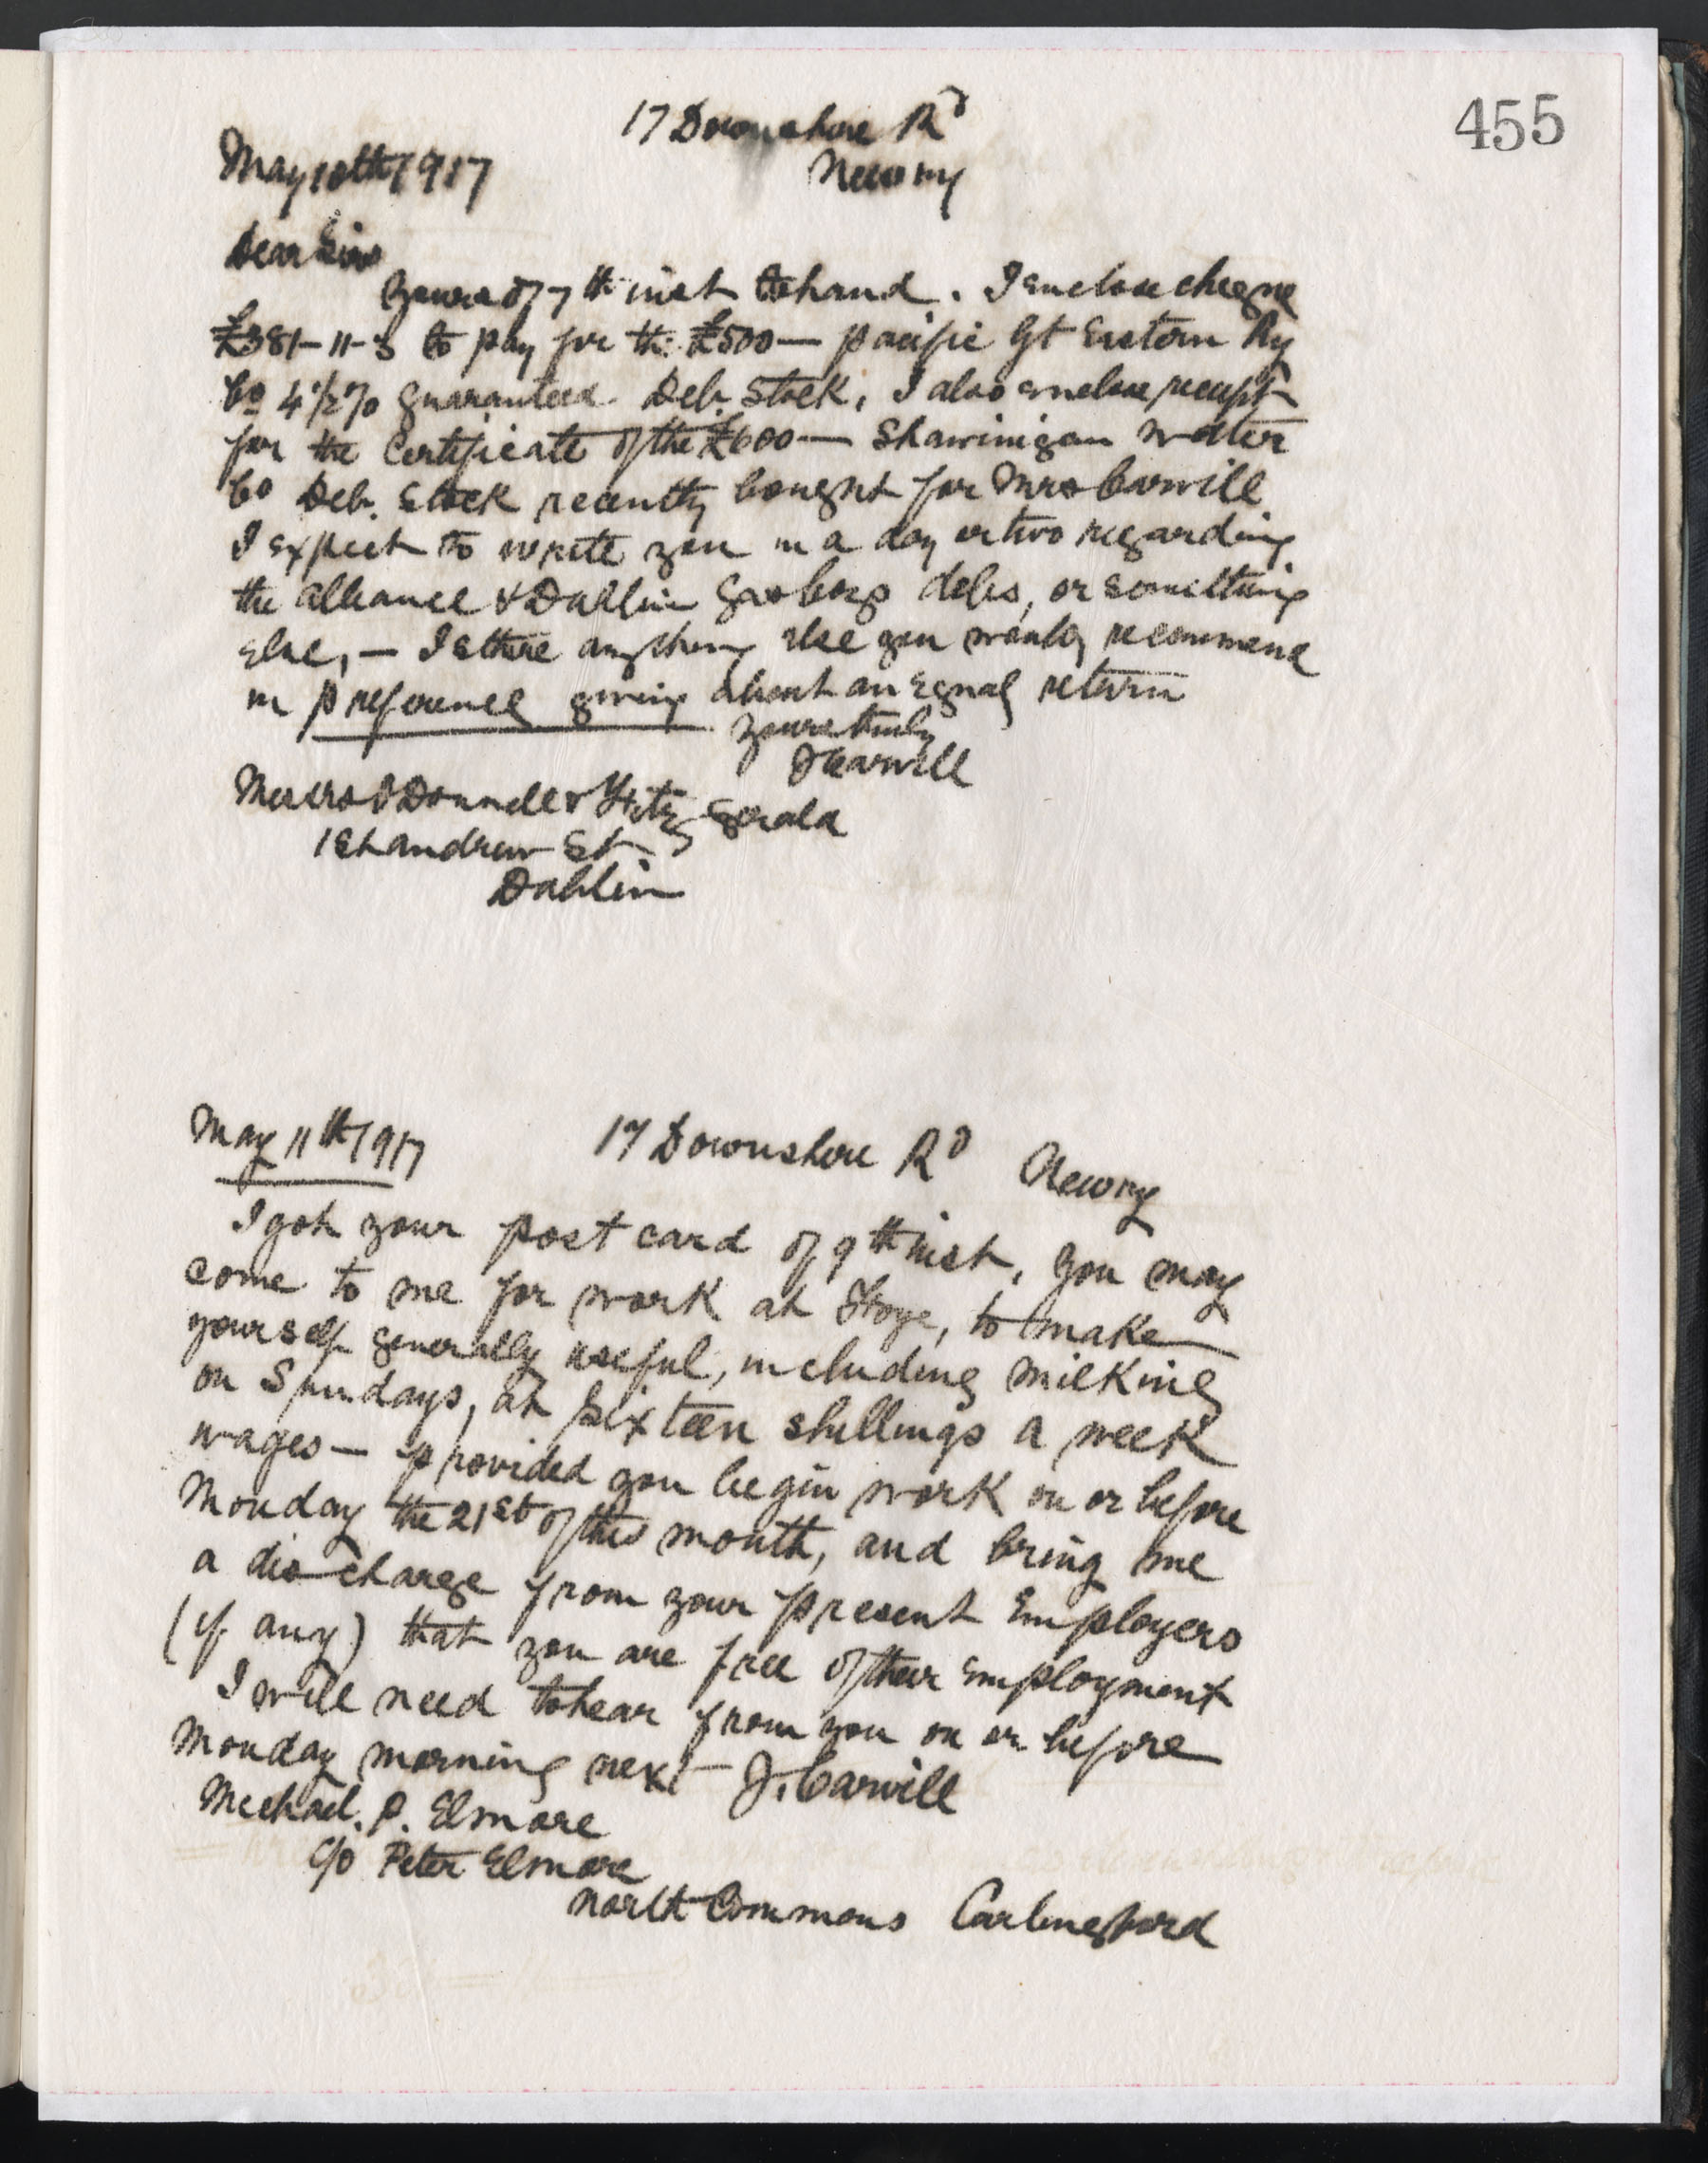 455
17 Downshire Rd
May 10th 1917 Newry
Dear Sirs
Yours of 7th inst to hand. I enclose cheque
£381-11-3 to pay for the £500— Pacific Gt Eastern Ry
Co 4½% guaranteed Deb. Stock, I also enclose receipt
for the Certificate of the £600— Shawinigan Water
Co Deb. Stock recently bought for Mrs Carvill
I expect to write you in a day or two regarding
the Alliance & Dublin Gas Corps debs, or something
else, — Is there anything else you would recommend
in preference giving about an equal return
Yours truly
J Carvill
Messrs O Donnell & Fitzgerald
1 St Andrew St
Dublin
May 11th 1917 17 Downshire Rd Newry
I got your post card of 9th inst, you may
come to me for work at , to make
yourself generally useful, including milking
on Sundays, at sixteen shillings a week
wages— provided you begin work on or before
Monday the 21st of this month, and bring me
a discharge from your present Employers
(if any) that you are free of their Employment
I will need to hear from you on or before
Monday morning next — J. Carvill
Michael. P. Elmore
c/o Peter Elmore
North Commons Carlingford